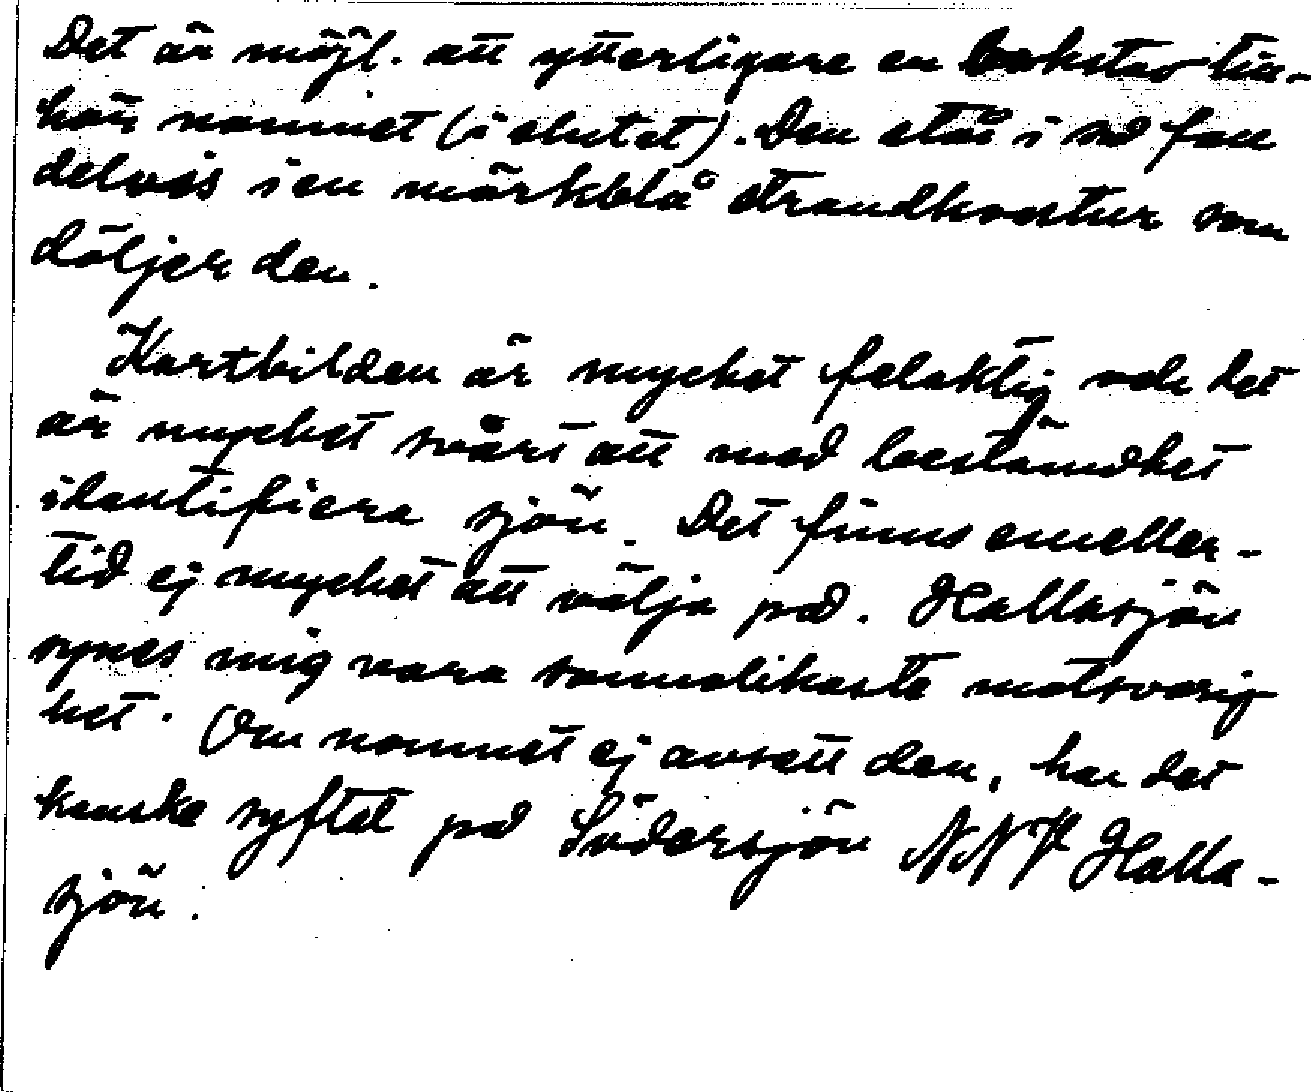 Det är möjl. att ytterligare en bokstav till-
hör namnet (i slutet). Den står i så fall
delvis i en mörkblå strandkontur som
döljer den.
Kartbilden är mycket felaktig och det
är mycket svårt att med bestämdhet
identifiera sjön. Det finns emeller-
tid ej mycket att välja på. Hallasjön
synes mig vara sannolikaste motsvarig-
het. Om namnet ej avsett den, har det
kanske syftat på Södersjön NNV Halla-
sjön.